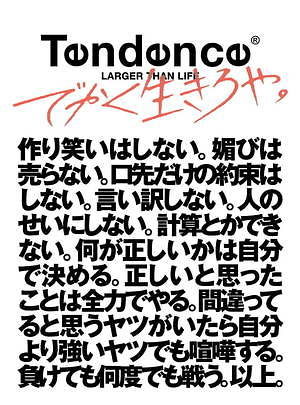 Tendence®
LARGER THAN LIFE
でかく生きろや。
作り笑いはしない。媚びは
売らない。口先だけの約束は
しない。言い訳しない。人の
せいにしない。計算とかでき
ない。何が正しいかは自分
で決める。正しいと思った
ことは全力でやる。間違って
ると思うヤツがいたら自分
より強いヤツでも喧嘩する。
負けても何度でも戦う。以上。